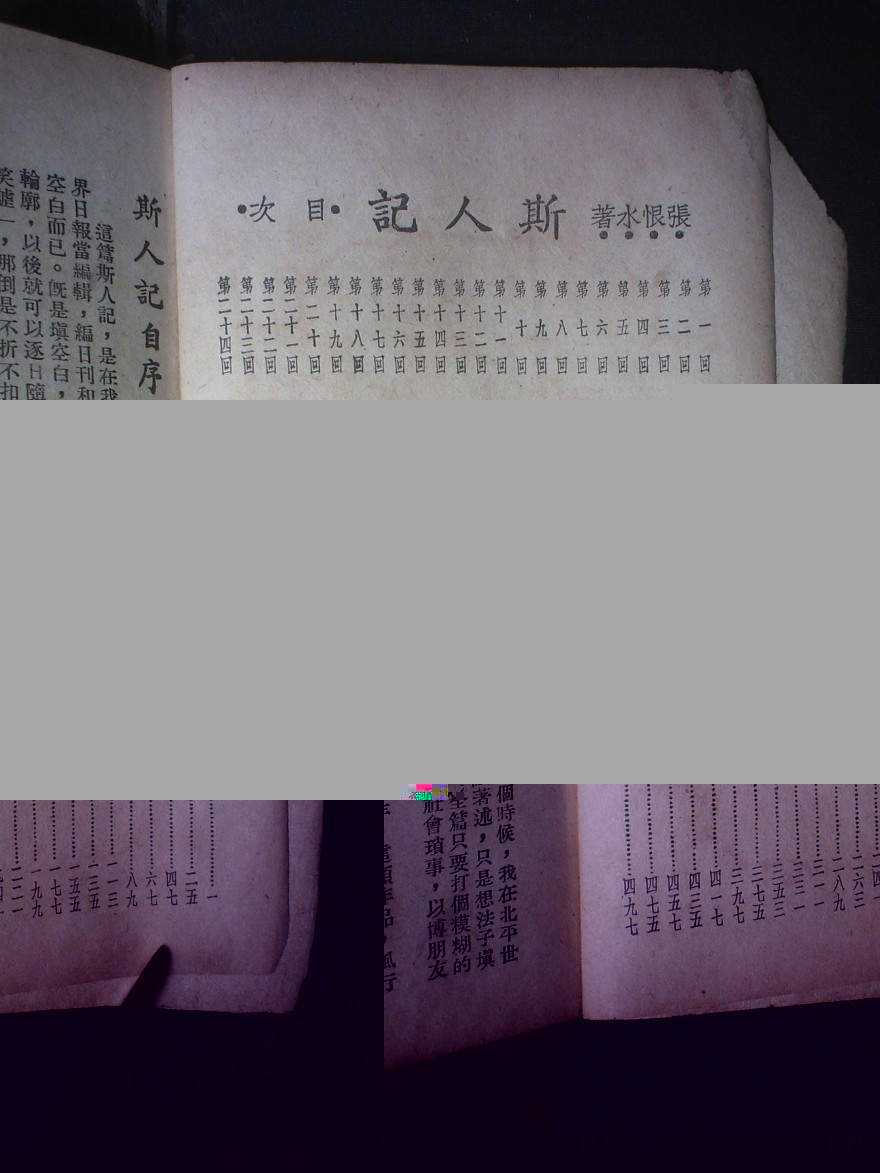 張恨水著
斯人記
•目次•
第一回
第二回
第三回
第四回
第五回
第六回
第七回
第八回
第九回
第十回
第十一回
第十二回
第十三回
第十四回
第十五回
第十六回
第十七回
第十八回
第十九回
第二十回
第二十一回
第二十二回
第二十三回
第二十四回
斯人記自序
這篇斯人記，是在我
界日報當編輯，編日刊和
空白而已。既是塡空白，
輪廓，以後就可以逐日隨
，那倒是不折不扣
一
二五
四七
六七
八九
一一三
一三五
一五五
一七七
一九九
二二一
二六三
二八九
三一一
三三一
三五三
三七五
三九七
四一七
四三五
四五七
四七五
四九七
個時候，我在北平世
著述，只是想法子塡
篇只要打個模糊的
社會瑣事，以博朋友
這項作品，風行